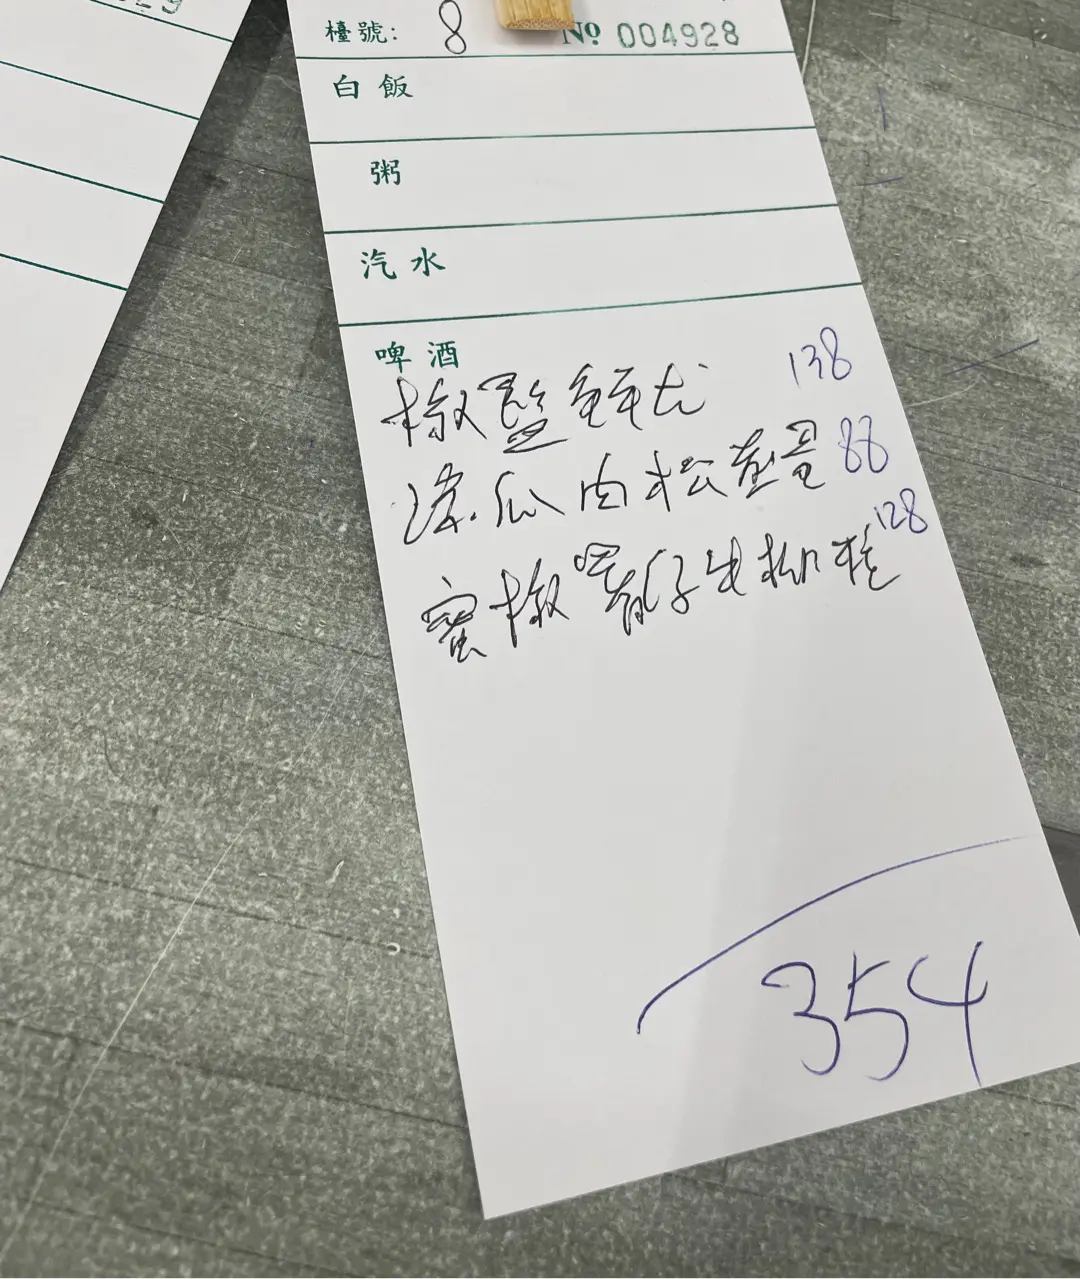 檯號: 8 Nº 004928
白飯
粥
汽水
啤酒
椒鹽鮮尤 138
涼瓜肉松煎蛋 88
蜜椒薯仔牛柳粒 128
354